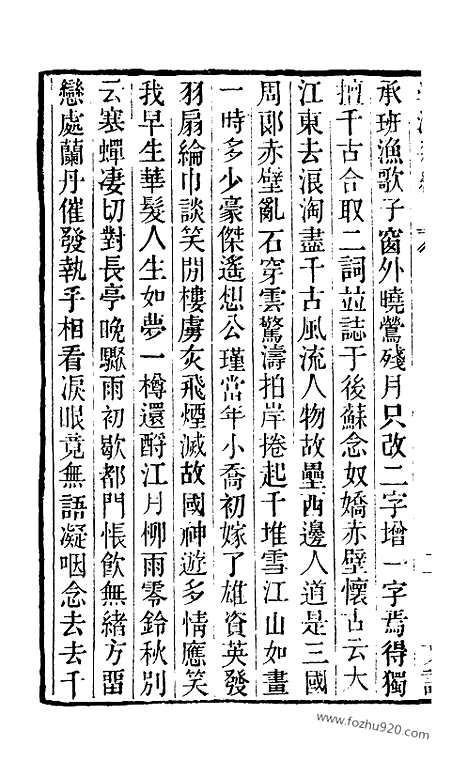 承班漁歌子窗外曉鶯殘月只改二字增一字焉得獨
擅千古合取二詞並誌于後蘇念奴嬌赤壁懷古云大
江東去浪淘盡千古風流人物故壘西邊人道是三國
周郎赤壁亂石穿雲驚濤拍岸捲起千堆雪江山如畫
一時多少豪傑遙想公瑾當年小喬初嫁了雄資英發
羽扇綸巾談笑閒樓虜灰飛煙滅故國神遊多情應笑
我早生華髮人生如夢一樽還酹江月柳雨零鈴秋別
云寒蟬凄切對長亭晚驟雨初歇都門悵飲無緒方畱
戀處蘭丹催發執手相看淚眼竟無語凝咽念去去千
www.fozhu920.com